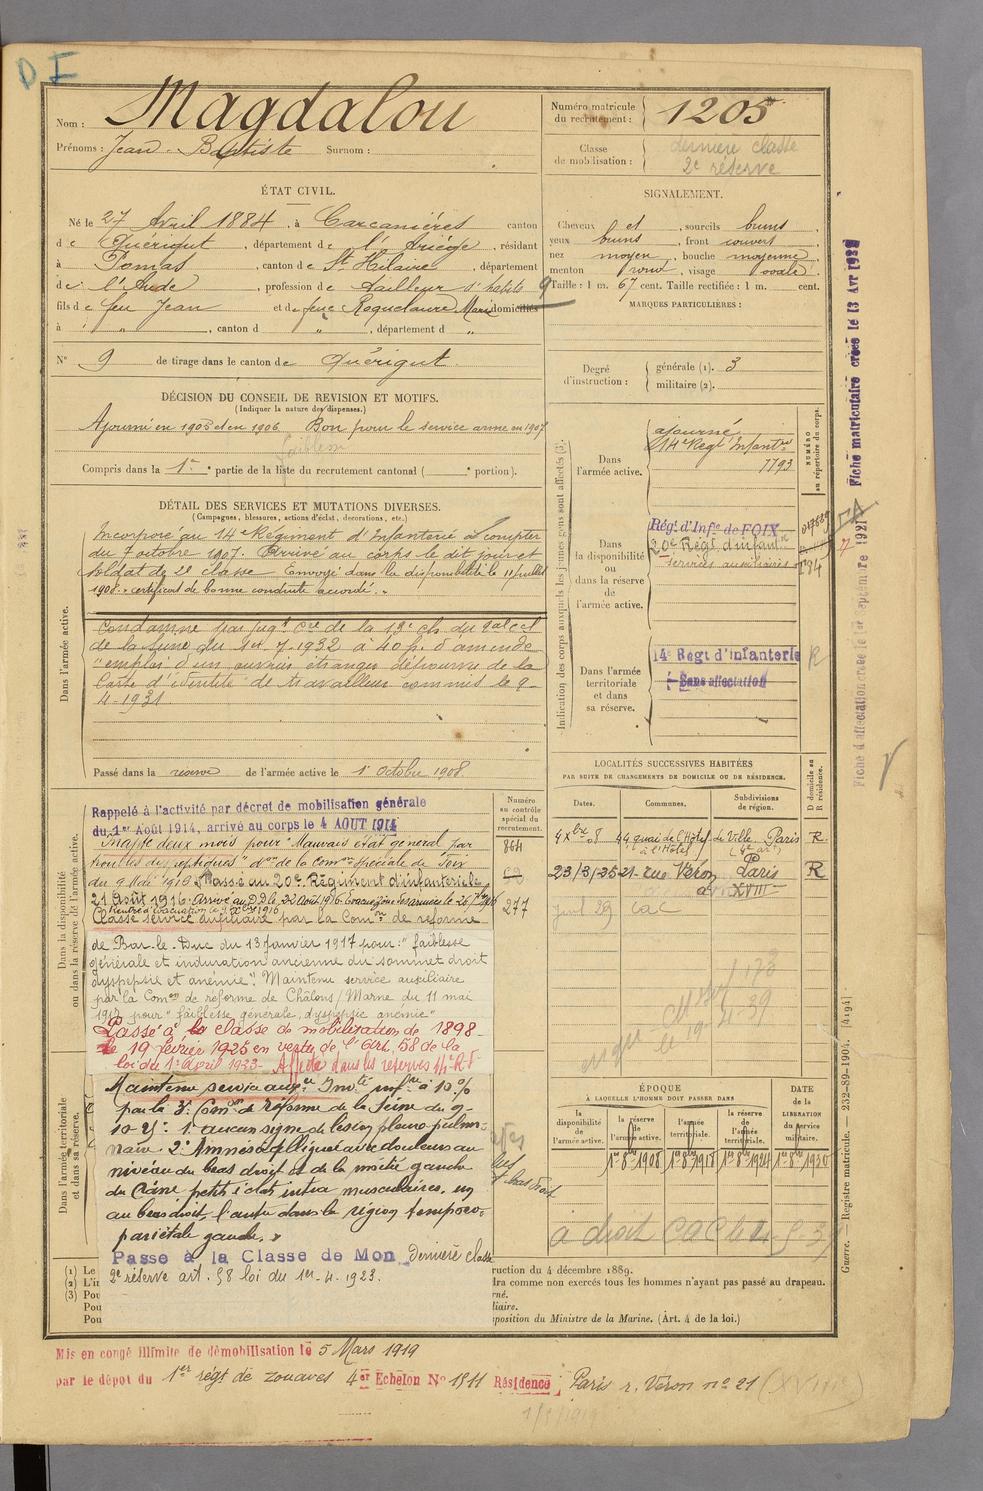 D I
Nom : Magdalou
Prénoms : Jean-Baptiste Surnom :
Numéro matricule du recrutement : 1205
Classe de mobilisation : dernière classe 2e réserve
ÉTAT CIVIL.
Né le 27 Avril 1884, à Carcanières canton
de Quérigut, département de l'Ariège, résidant
à Pomas, canton de St Hilaire, département
de l'Aude, profession de tailleur d'habits
fils de feu Jean et de feue Roquelaure Marie domiciliés
à " , canton d " , département d "
N° 9 de tirage dans le canton de Quérigut.
SIGNALEMENT.
Cheveux et , sourcils bruns ,
yeux bruns , front couvert ,
nez moyen , bouche moyenne ,
menton rond , visage ovale .
Taille : 1 m. 67 cent. Taille rectifiée : 1 m. cent.
MARQUES PARTICULIÈRES :
Degré d'instruction : générale (1). 3
militaire (2).
DÉCISION DU CONSEIL DE REVISION ET MOTIFS.
(Indiquer la nature des dispenses.)
Ajourné en 1905 et en 1906 Bon pour le service armé en 1907
faiblesse
Compris dans la 1re partie de la liste du recrutement cantonal ( portion).
DÉTAIL DES SERVICES ET MUTATIONS DIVERSES.
(Campagnes, blessures, actions d'éclat, décorations, etc.)
Dans l'armée active.
Incorporé au 14e Régiment d'Infanterie à compter
du 7 octobre 1907. Arrivé au corps le dit jour et
soldat de 2e classe Envoyé dans la disponibilité le 11 juillet
1908. "certificat de bonne conduite accordé."
Condamné par jugt cre de la 13e ch. du
de la Seine du 1er 7-1932 à 40 f. d'amende
"emploi d'un ouvrier étranger dépourvu de la
Carte d'identité de travailleur commis le 9-
4-1931
Passé dans la réserve de l'armée active le 1er Octobre 1908.
Indication des corps auxquels les jeunes gens sont affectés (3).
NUMÉRO au répertoire du corps.
Dans l'armée active.
ajourné
14e Régt Infantrie
7793
Dans la disponibilité ou dans la réserve de l'armée active.
Rég. d'Infie de FOIX
20e Régt d'infantie
services auxiliaires
Dans l'armée territoriale et dans sa réserve.
14e Régt d'Infanterie R
Sans affectation
Fiche matriculaire créée le 13 Avr 1921
Fiche d'affectation créée le 1er Septembre 1921
LOCALITÉS SUCCESSIVES HABITÉES
PAR SUITE DE CHANGEMENTS DE DOMICILE OU DE RÉSIDENCE.
D domicile ou R résidence.
Dates. Communes. Subdivisions de région.
4 Xbre 8 44 quai de l'Hôtel de Ville Paris R
(à l'Hôtel) (4e art)
23/3/35 21 rue Véron Paris R
ar XVIII
CaC
Dans la disponibilité ou dans la réserve de l'armée active.
Numéro au contrôle spécial du recrutement.
864
277
Rappelé à l'activité par décret de mobilisation générale
du 1er Août 1914, arrivé au corps le 4 AOUT 1914
Inapte deux mois pour "Mauvais état général par
troubles dyspeptiques" don de la Comon spéciale de Foix
du 9 Mai 1916 Passé au 20e Régiment d'infanterie le
21 Août 1916. Arrivé au D.D. le 22 Août 1916
Rentré d'évacuation le
Classé service auxiliaire par la Comon de réforme
de Bar-le-Duc du 13 Janvier 1917 pour : "faiblesse
générale et induration ancienne du sommet droit
dyspepsie et anémie". Maintenu service auxiliaire
par la Comon de réforme de Châlons/Marne du 11 mai
1917 pour "faiblesse générale, dyspepsie anémie"
Passé à la classe de mobilisation de 1898
le 19 février 1925 en vertu de l'Art. 58 de la
loi du 1er Avril 1923- Affecté dans les réserves 14e R.I.
Maintenu service auxre Invté infre à 10 %
par la 3e Comon de réforme de la Seine du 9-
10-25 : 1° aucun signe de lésion pleuro-pulmo-
naire 2° Amnésie alléguée avec douleurs au
niveau du bras droit et de la moitié gauche
du crâne petits éclats intra musculaires, un
au bras droit, l'autre dans la région temporo-
pariétale gauche."
Passé à la Classe de Mon Dernière classe
2e réserve art. 58 loi du 1er-4-1923.
Dans l'armée territoriale et dans sa réserve.
ÉPOQUE
À LAQUELLE L'HOMME DOIT PASSER DANS
la disponibilité de l'armée active.
la réserve de l'armée active.
l'armée territoriale.
la réserve de l'armée territoriale.
DATE de la LIBÉRATION du service militaire.
1er 8bre 1908 1er 8bre 1918 1er 8bre 1924 1er 8bre 1930
à droit CaC le
(1) Le
(2) L'in
(3) Pou
Pou
Pou
ruction du 4 décembre 1889.
dra comme non exercés tous les hommes n'ayant pas passé au drapeau.
rné.
liaire.
position du Ministre de la Marine. (Art. 4 de la loi.)
Guerre. — Registre matricule. — 232-89-1904. [4194]
Mis en congé illimité de démobilisation le 5 Mars 1919
par le dépôt du 1er régt de zouaves 4er Echelon N° 1511 Résidence Paris r. Véron n° 21 (XVIIIe)